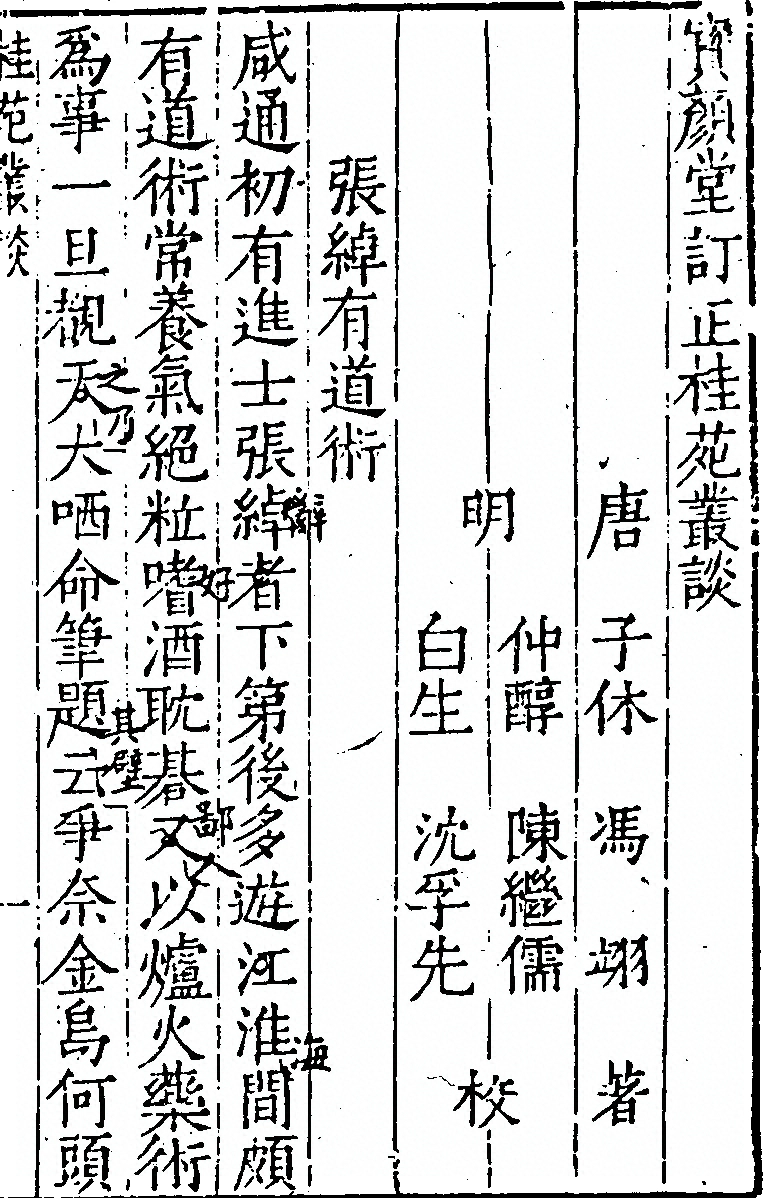 寶顏堂訂正桂苑叢談
唐 子休 馮翊 著
明
仲醇 陳繼儒
白生 沈孚先
校
張綽有道術
咸通初有進士張綽者下第後多遊江淮間頗
海
有道術常養氣絕粒嗜酒耽碁又以爐火藥術
好
鄙
爲事一旦覩天大哂命筆題云爭奈金烏何頭
之乃
其壁
桂苑叢談